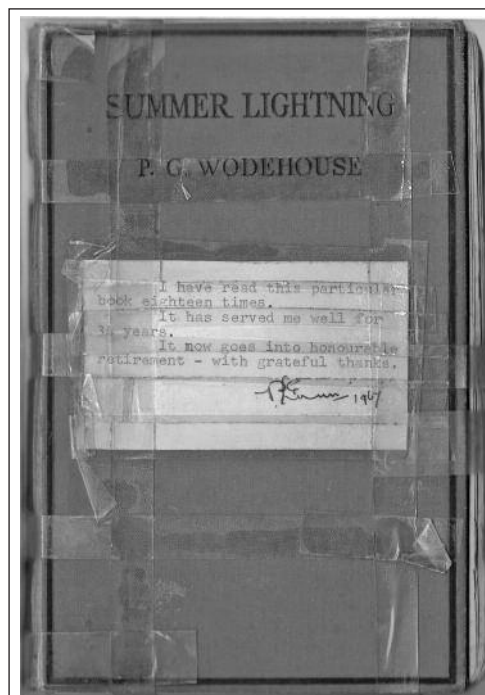 SUMMER LIGHTNING
P. G. WODEHOUSE
I have read this particular
book eighteen times.
It has served me well for
years.
It now goes into honourable
retirement - with grateful thanks.
1967